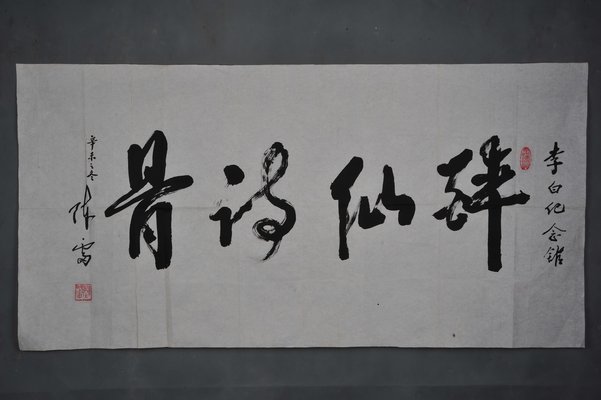 李白纪念馆
醉仙诗骨
辛未之冬
陈雷